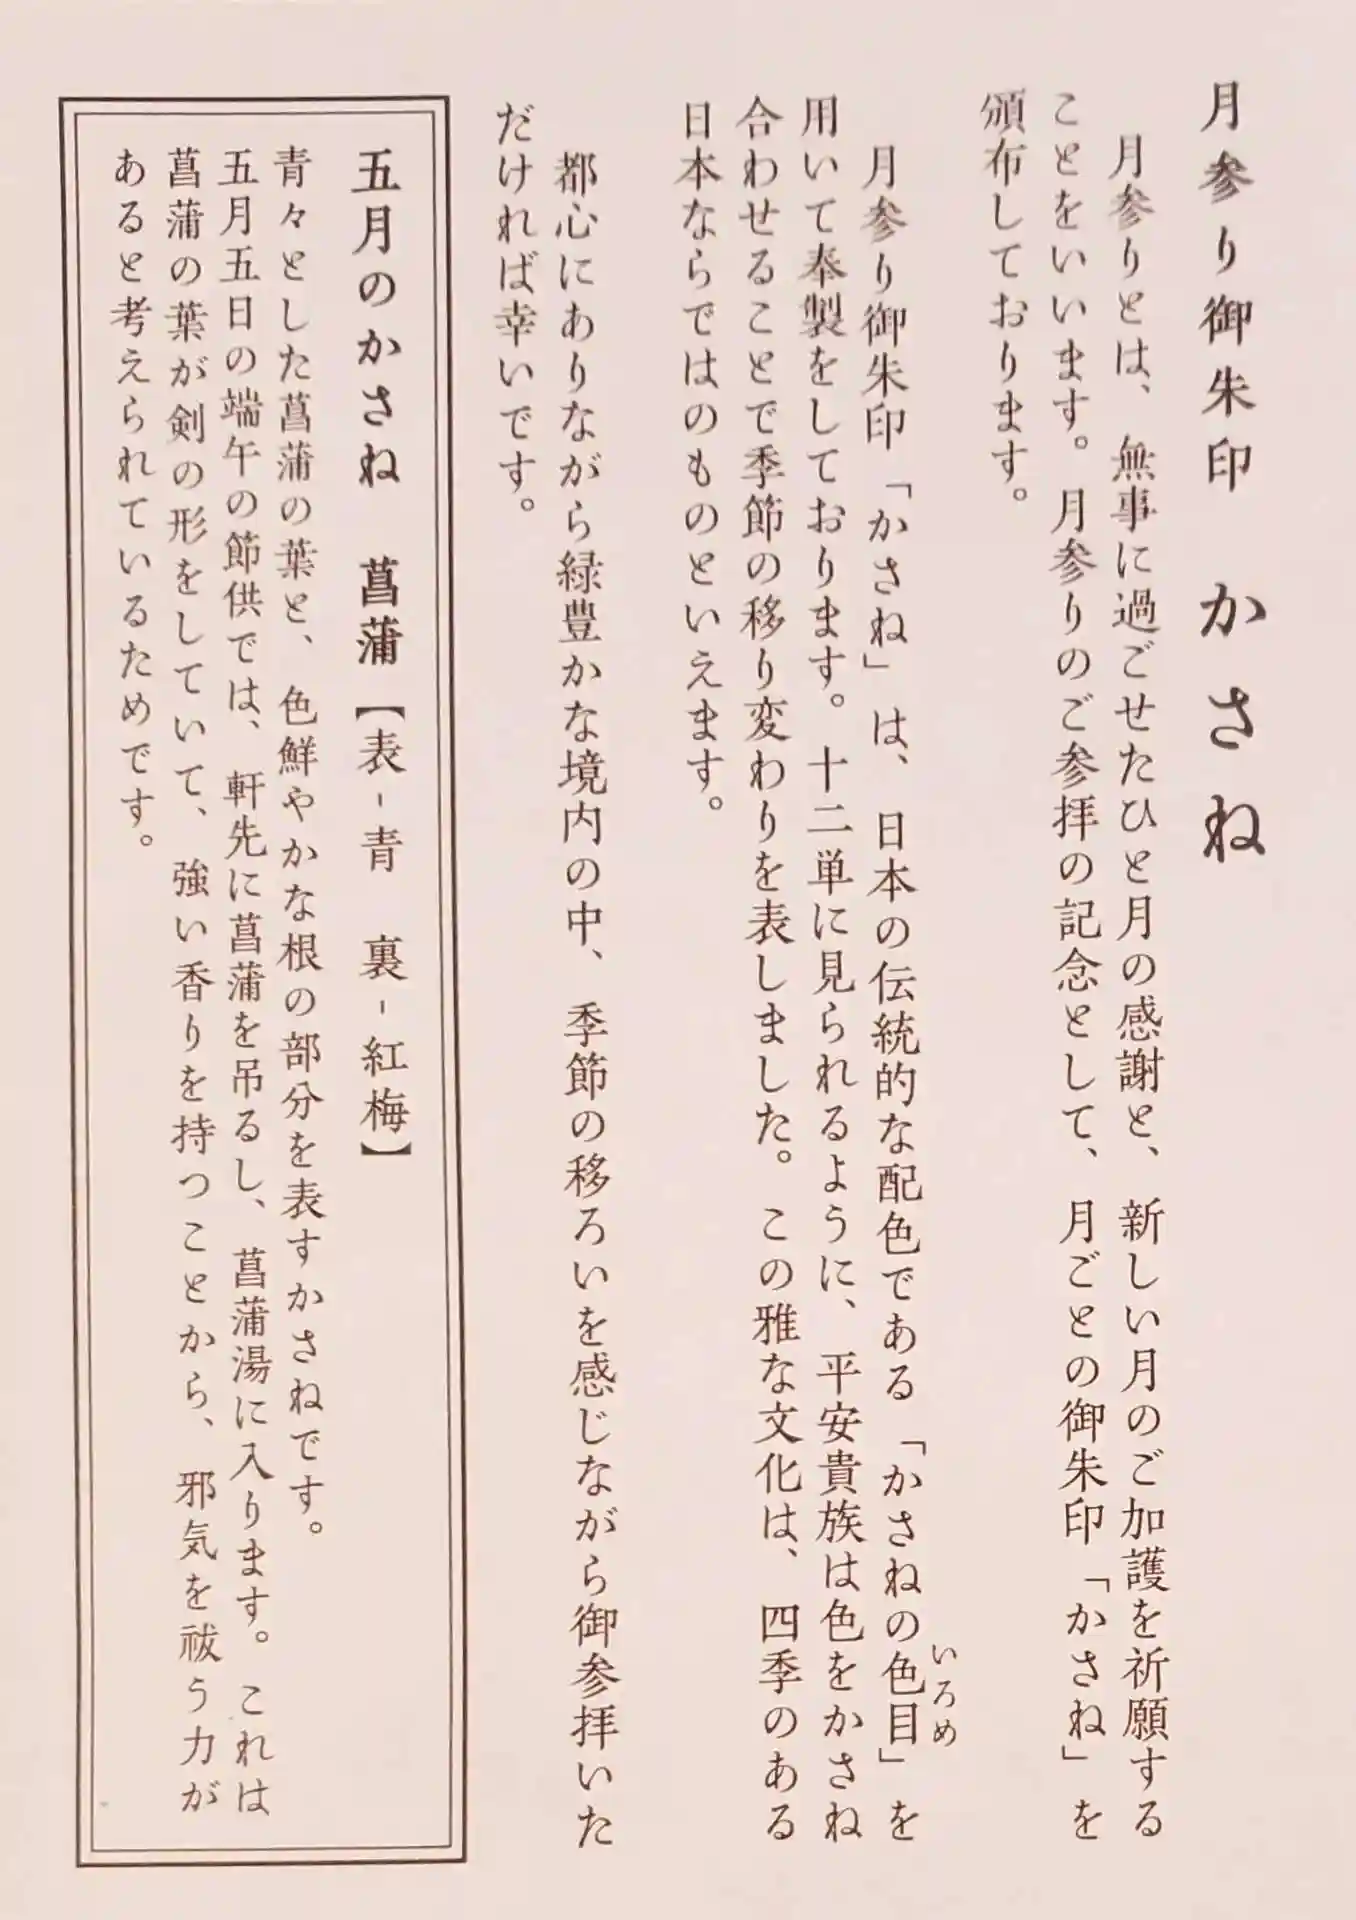 月参り御朱印 かさね
月参りとは、無事に過ごせたひと月の感謝と、新しい月のご加護を祈願する
ことをいいます。月参りのご参拝の記念として、月ごとの御朱印「かさね」を
頒布しております。
月参り御朱印「かさね」は、日本の伝統的な配色である「かさねの色目」を
いろめ
用いて奉製をしております。十二単に見られるように、平安貴族は色をかさね
合わせることで季節の移り変わりを表しました。この雅な文化は、四季のある
日本ならではのものといえます。
都心にありながら緑豊かな境内の中、季節の移ろいを感じながら御参拝いた
だければ幸いです。
五月のかさね 菖蒲【表-青 裏-紅梅】
青々とした菖蒲の葉と、色鮮やかな根の部分を表すかさねです。
五月五日の端午の節供では、軒先に菖蒲を吊るし、菖蒲湯に入ります。これは
菖蒲の葉が剣の形をしていて、強い香りを持つことから、邪気を祓う力が
あると考えられているためです。